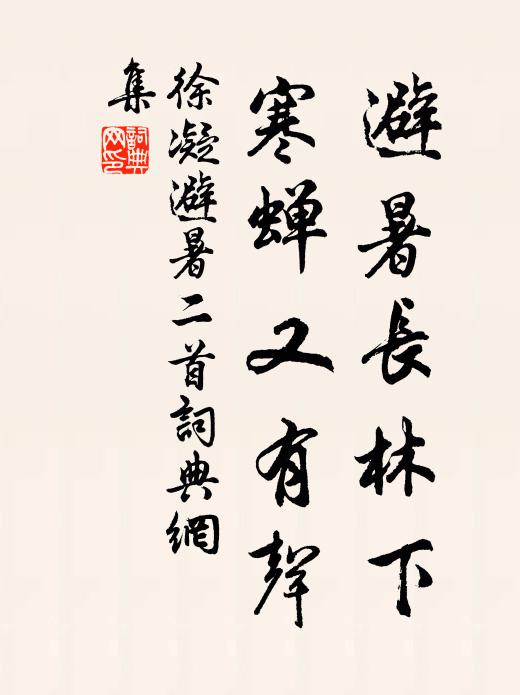 避暑長林下
寒蝉又有聲
徐凝避暑二首詞典網
集
詞典
网印